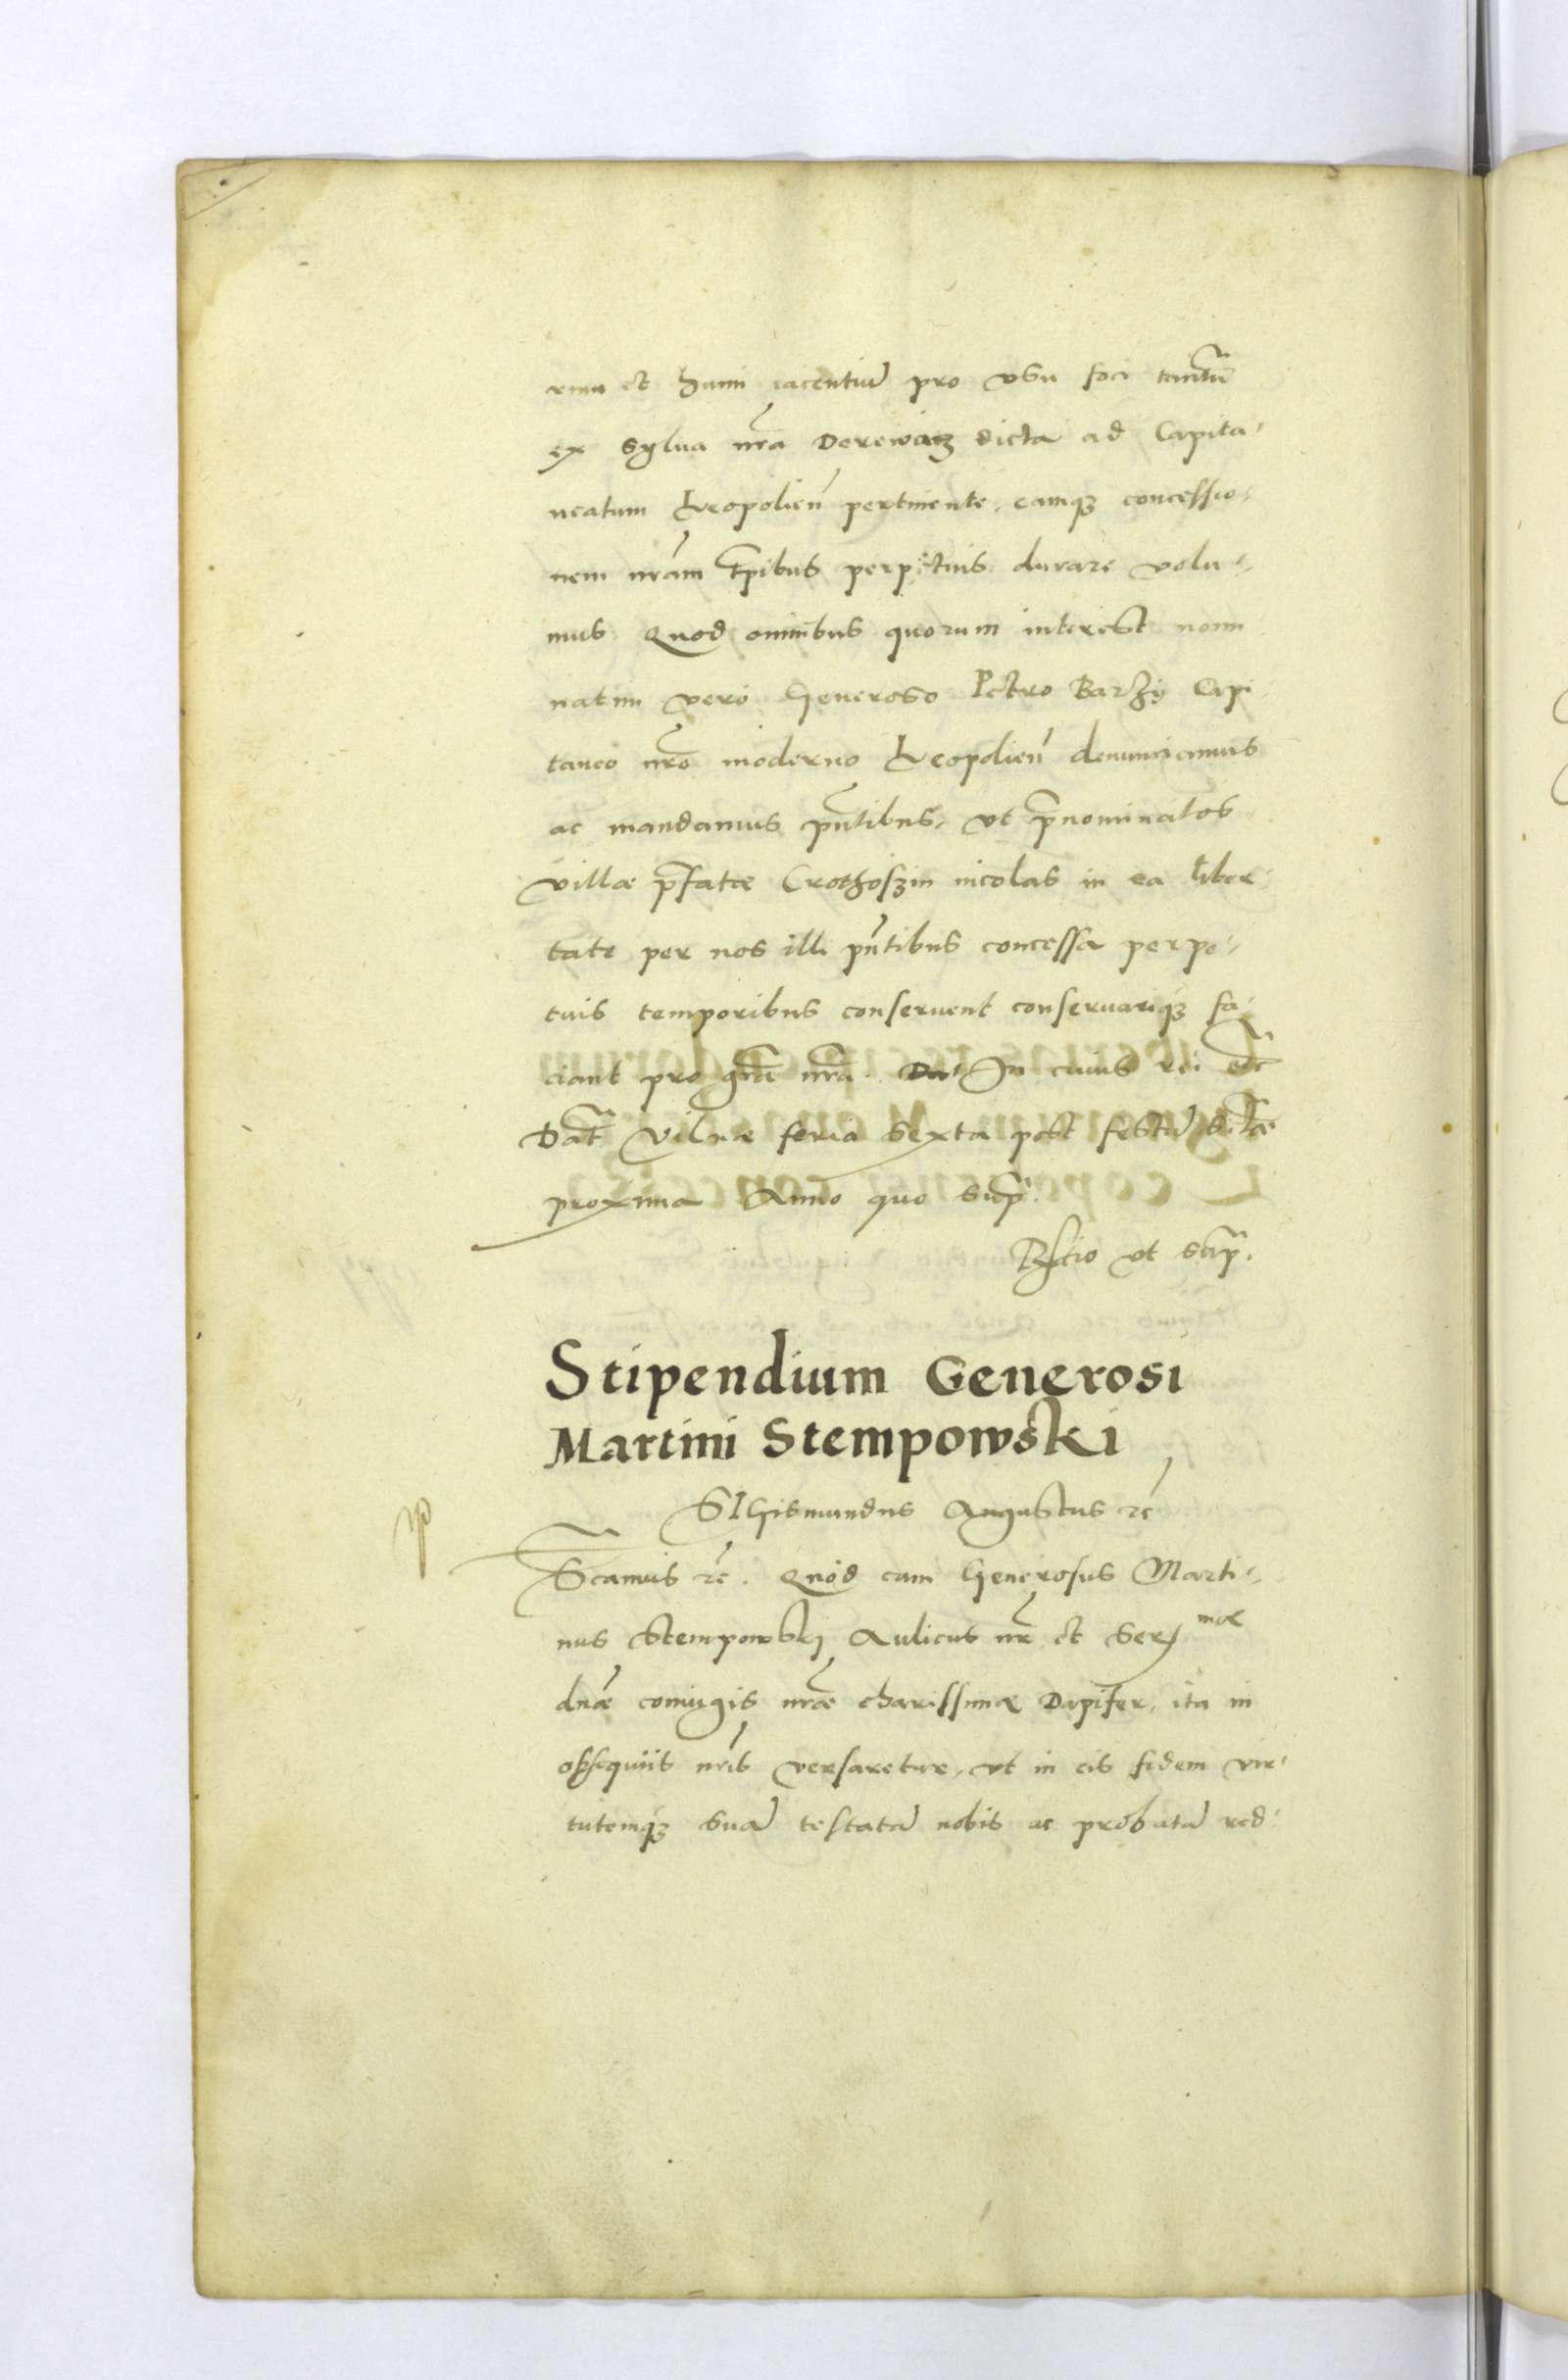 rum et humi iacentiū pro vsu foci tantū
ex sylua nr̄a Derewacz dicta ad Capita-
neatum Leopolien̄ pertinente, eamq3 concessio-
nem nr̄am tp̄ibus perpetuis durare volu-
mus. Quod omnibus quorum interest nomi
natim vero Generoso Petro Barzÿ Capi
taneo nr̄o moderno Leopolien̄ denunciamus
ac mandamus pn̄tibus, vt p̄nominatos
villæ p̄fatæ Crothoszin incolas in ea liber-
tate per nos illi pn̄tibus concessa perpe-
tuis temporibus conseruent conseruariq3 fa-
ciant pro gr̄a nr̄a. Dat In cuius rei etc̄
Dat̄ Vilnæ feria sexta post festū
proxima Anno quo sup̄.
Rl̄atio vt sup̄.
Stipendium Generosi
Martini Stempowski
SIGismundus Augustus rc̄
Sc̄amus rc̄. Quod cum Generosus Marti-
nus Stempowski Aulicus nr̄ et Ser mæ
dn̄æ coniugis nr̄æ charissimæ Dapifer, ita in
obsequiis nr̄is versaretur, vt in eis fidem vir-
tutemq3 suā testatā nobis ac probatā red-